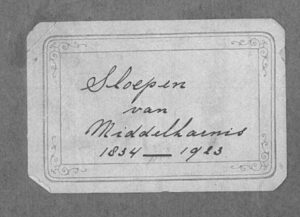 Sloepen
van
Middelharnis
1834 — 1923